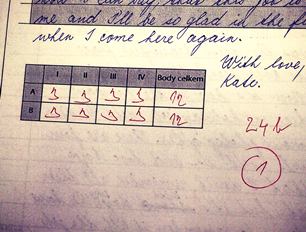 me and I'll be so glad in the
when I come here again.
With love,
Kate.
I II III IV Body celkem
A 3 3 3 3 12
B 3 3 3 3 12
24 b
1